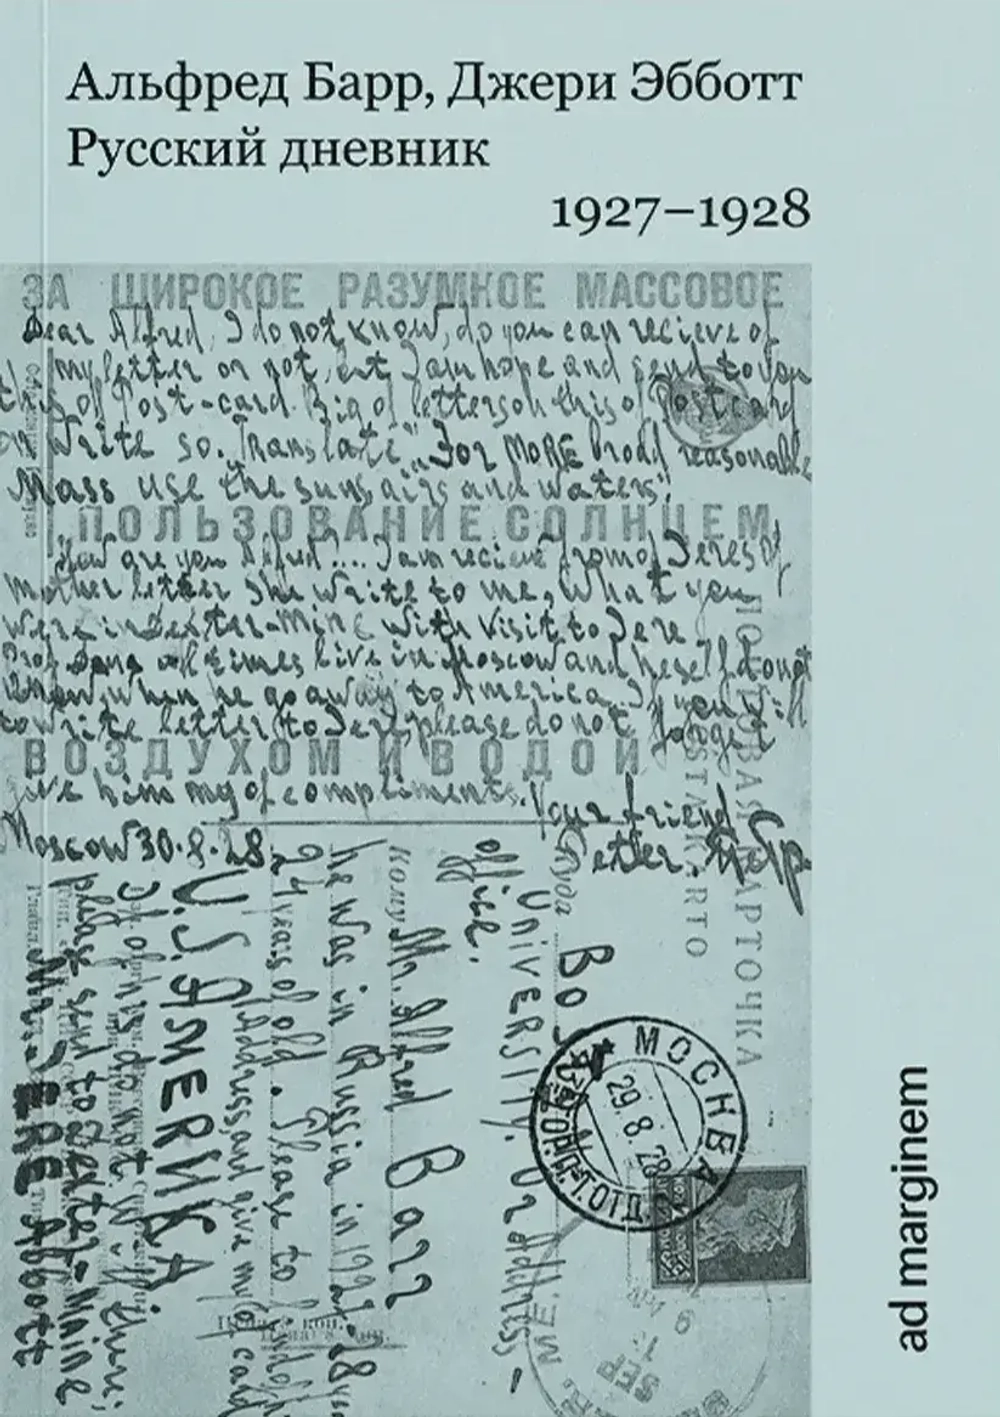 Альфред Барр, Джери Эбботт
Русский дневник
1927–1928
ЗА ШИРОКОЕ РАЗУМНОЕ МАССОВОЕ
Dear Alfred, I do not know, do you can recieve of
my letter or not, but I am hope and send to you
this of Post-card. Big of letters on this of Postcard
Write so. Translate "For MORE broad reasonable
Mass use the suns, airs and waters".
ПОЛЬЗОВАНИЕ СОЛНЦЕМ
How are you Alfred .... I am recieve from of Jeres of
mother letter she write to me, what you
were in Dexter-Mine with visit to Jere
times live in Moscow and heself do not
know, when he go away to America. If you will
to write letter to Jere, please do not forget
ВОЗДУХОМ И ВОДОЙ
give him my of compliments. Your friend
Moscow 30.8.28.
Petter
ПОЧТОВАЯ КАРТОЧКА
Куда
Bos
University. Or address-
office.
Кому
Mr. Alfred Barr
he was in Russia in 1927-28
24 years of old. Please to find of
Address and give my of card
U.S. АМЕРИКА
If of his do not will there;
please send to Dexter-Maine
Mr. JERE Abbott
МОСКВА
29.8.28
SEP
ad marginem